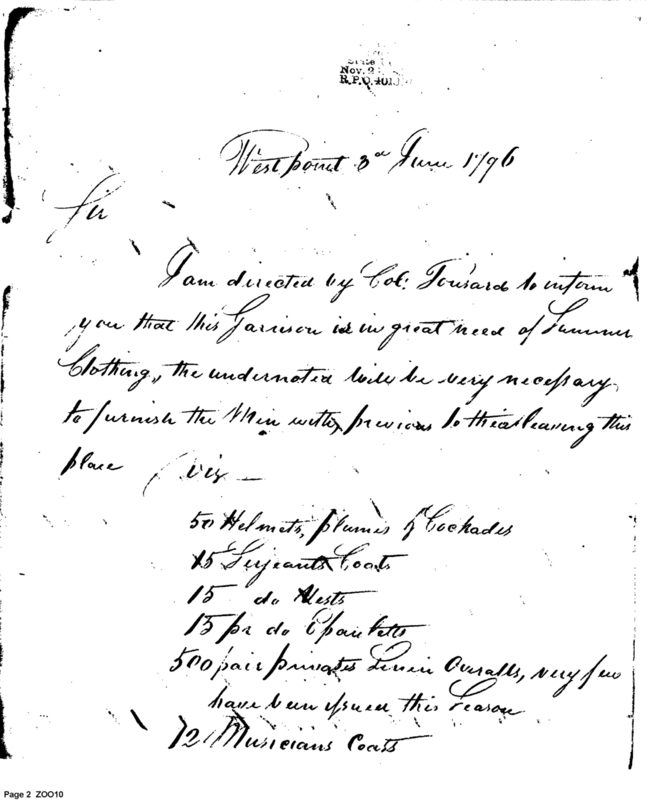 Nov. 2
R.P.O. 401
West point 3d June 1796
Sir
I am directed by Col: Tousard to inform
you that this Garrison is in great need of Summer
Clothing, the undernoted will be very necessary
to furnish the Men with, previous to their leaving this
place (viz —
50 Helmets, plumes & Cockades
15 Serjeants Coats
15 do Vests
15 pr do Epauletts
500 pair privates Linen Overalls, very few
have been issued this Season
12 Musicians Coats
Page 2 ZOO10